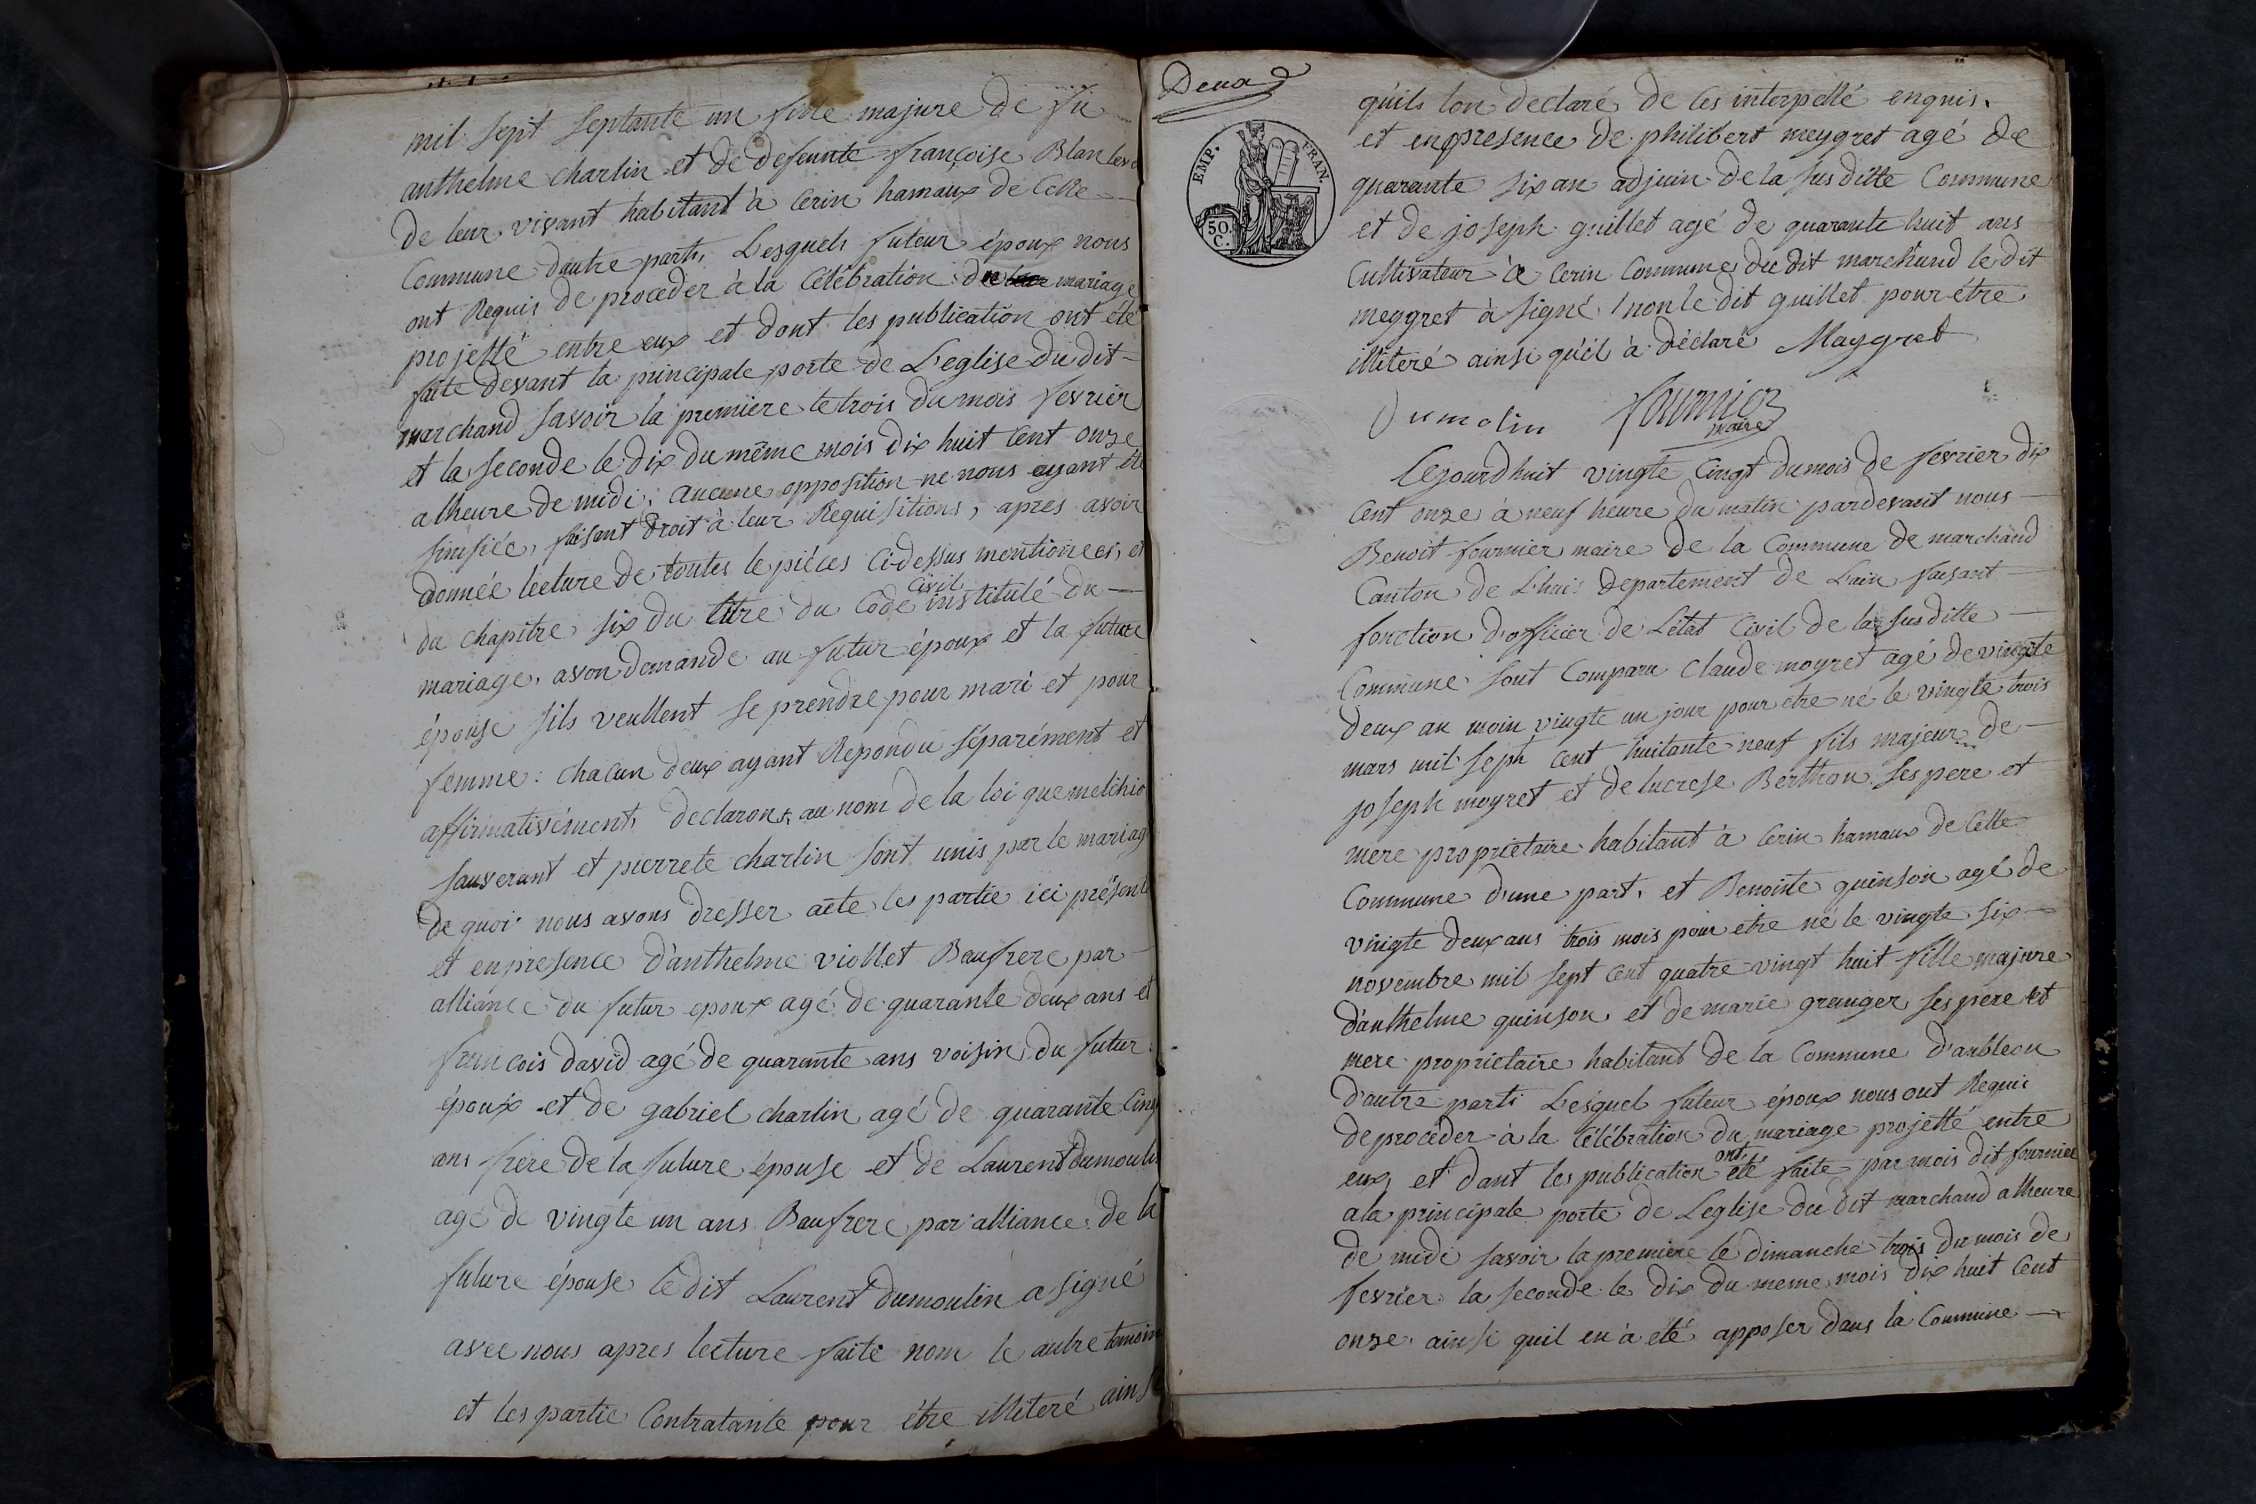 mil sept septante un fille majure de fu
anthelme charlin et de defeunte françoise Blan
de leur vivant habitant à Cerin hamaux de Cette
Commune d'autre part, Lesquels futeur époux nous
ont Requis de proceder à la Célébration du mariage
projetté entre eux et dont les publication ont été
faite devant la principale porte de L'eglise du dit
marchand savoir la premiere le trois du mois fevrier
et la seconde le dix du même mois dix huit Cent onze
a lheure de midi, aucune opposition ne nous ayant été
sinifiée, faisant droit à leur Requisitions, apres avoir
donnée lecture de toutes le piéces Ci-dessus mentionees, et
du chapitre six du titre du Code Civil institulé du
mariage, avon demande au futur époux et la future
épouse sils veullent se prendre pour mari et pour
femme: chacun deux ayant Repondu séparément et
affirmativément, declarons, au nom de la loi que melchio
sauverant et pierrete charlin sont unis par le mariag
De quoi nous avons dresser acte les partie ici présente
et en presence d'anthelme viollet Baufrere par
alliance du futur epoux agé de quarante deux ans et
francois david agé de quarante ans voisin du futur
époux et de gabriel charlin agé de quarante Cinq
ans frére de la future épouse et de Laurent dumoulin
agé de vingte un ans Baufrere par alliance de la
future épouse le dit Laurent dumoulin a signé
avec nous apres lecture faite nom le autre temoin
et les partie Contratante pour étre illiteré ainsi
Deux
EMP. FRAN.
50. C.
qu'ils lon declaré de Ces interpellé enquis.
et en presence de philibert meygret agé de
quarante six an adjuin de la sus ditte Commune
et de joseph guillet agé de quarante huit ans
Cultivateur à Cerin Commune du dit marchand le dit
meygret à signé, non le dit guillet pour étre
illiteré ainsi qu'il à déclaré Maygret
Dumolin fournier
maire
Cejourdhuit vingte Cinqt du mois de fevrier dix
Cent onze à neuf heure du matin pardevant nous
Benoit fournier maire de la Commune de marchand
Canton de Lhuis departement de Lain faisant
fonction d'officier de L'état Civil de la sus ditte
Commune sont Comparu Claude moyret agé de vingte
deux an moin vingte un jour pour etre né le vingte trois
mars mil seph Cent huitante neuf fils majeur de
joseph moyret et de lucrese Berthon ses pere et
mere proprietaire habitant à Cerin hamaux de Cette
Commune d'une part, et Benoite quinson agé de
vingte deux ans trois mois pour etre né le vingte six
novembre mil sept Cent quatre vingt huit fille majure
d'anthelme quinson, et de marie granger ses pere et
mere proprietaire habitant de la Commune d'ambleon
d'autre parti Lesquel futeur époux nous ont Requis
de procéder à la Célébration du mariage projetté entre
eux, et dant les publication ont été faite par mois dit fournier
a la principale porte de L'eglise du dit marchand a lheure
de midi savoir la premiere le dimanche trois du mois de
fevrier la seconde le dix du meme mois dix huit Cent
onze ainsi quil en à été apposer dans la Commune